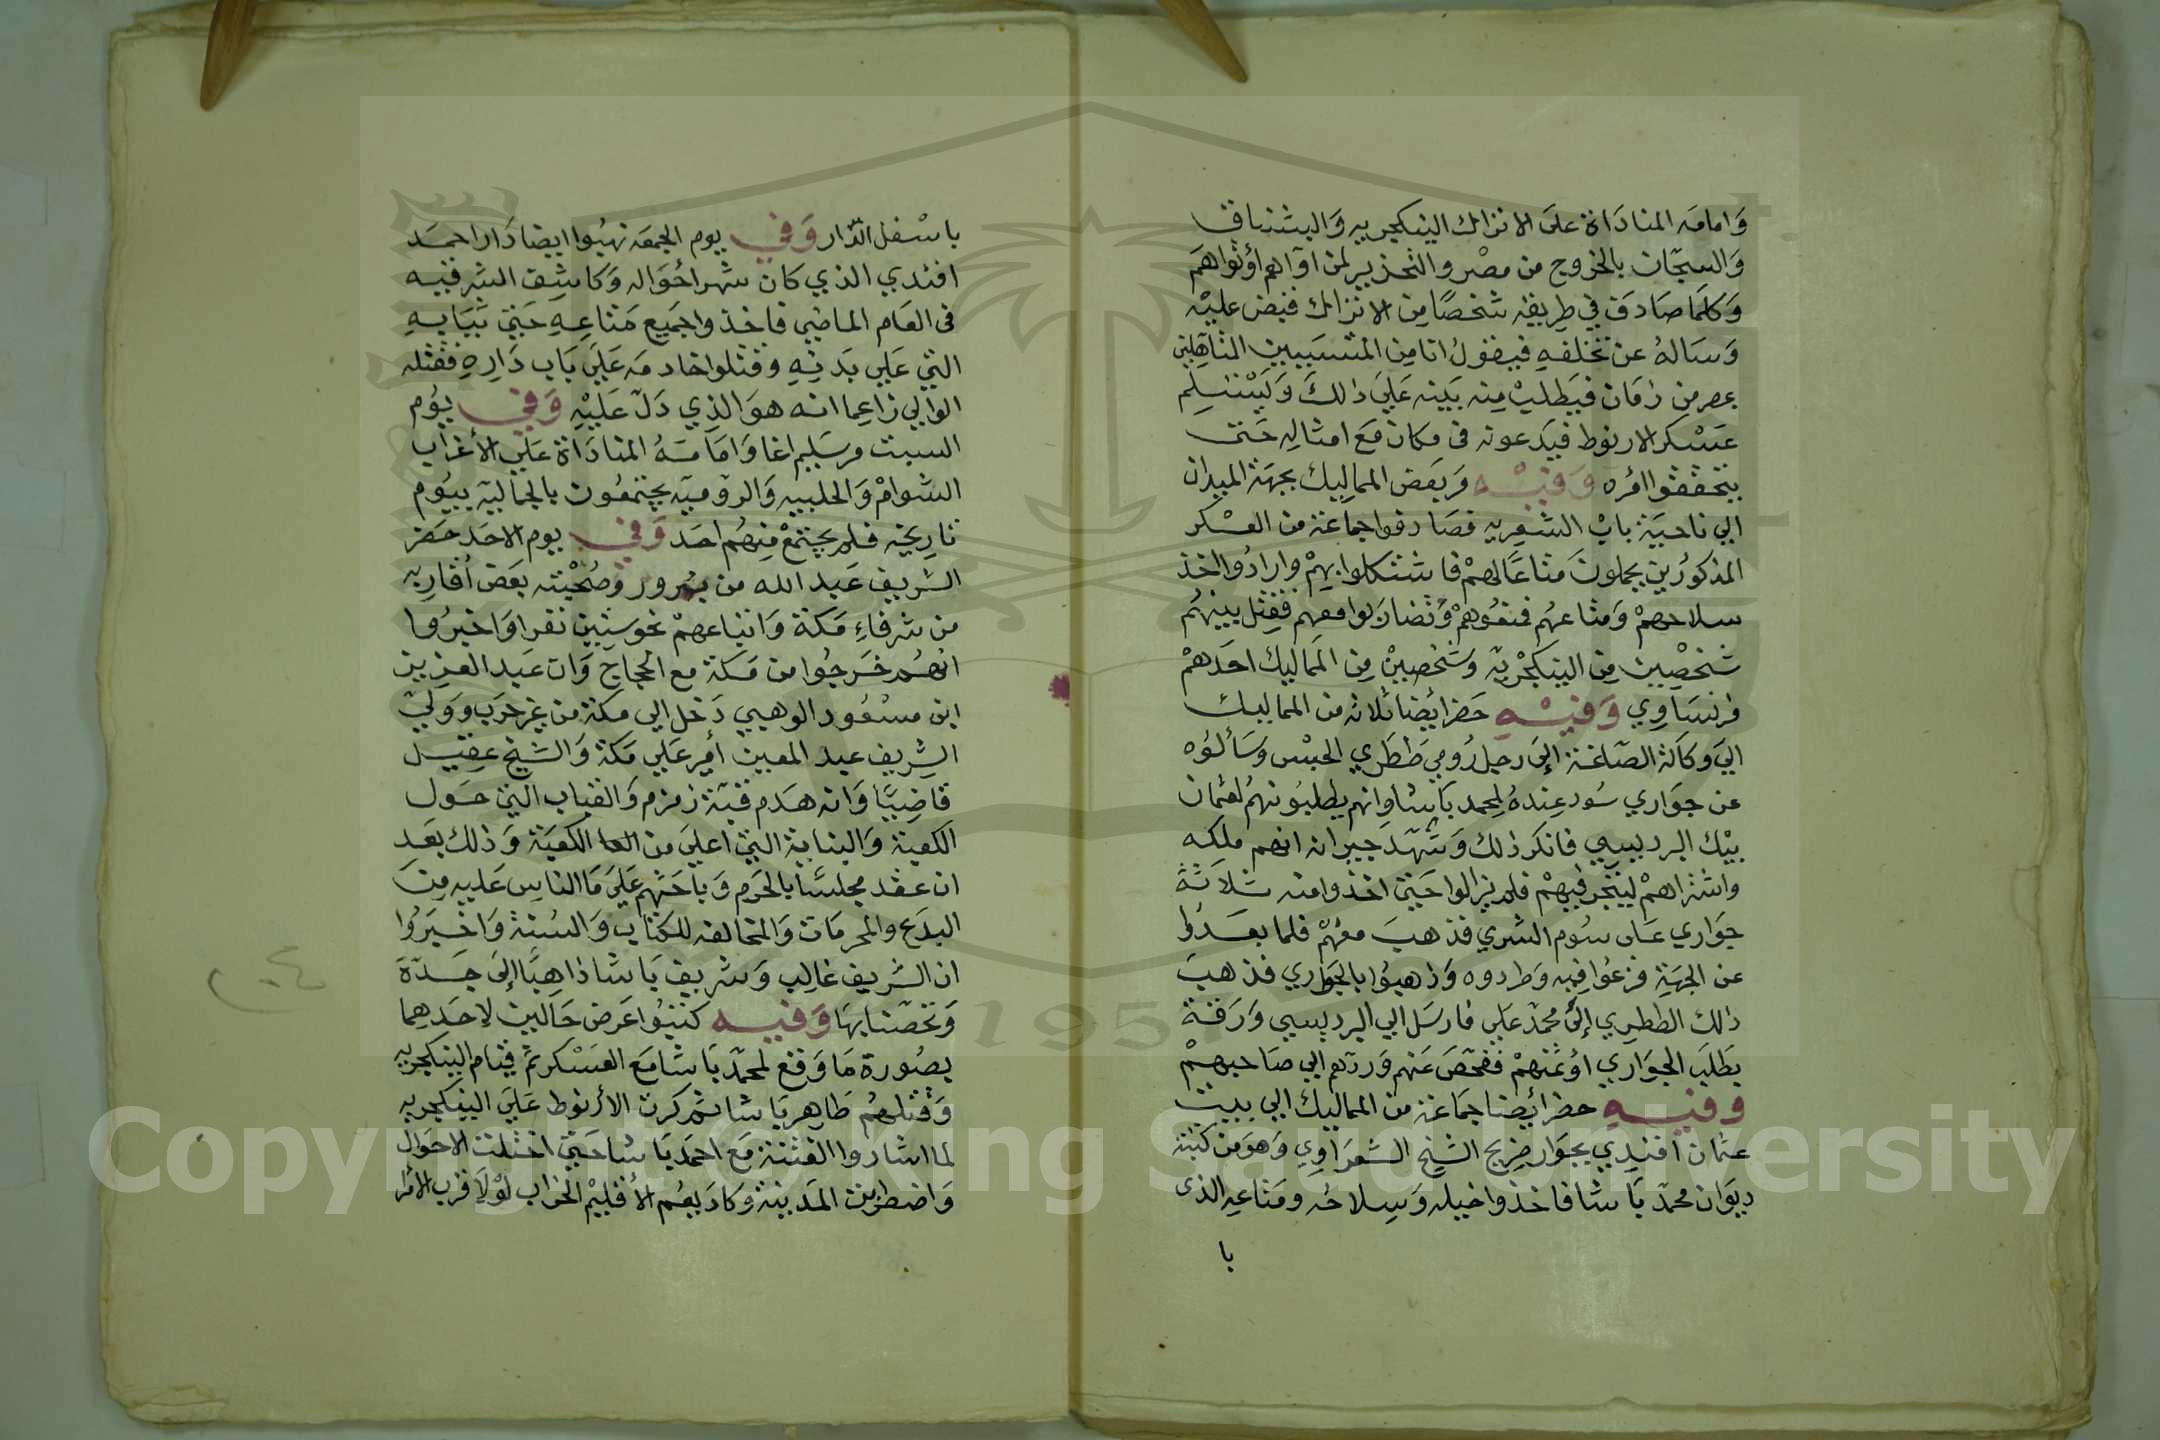 وَامامَه المنادَاة علَى الاتراك الينكجريه وَالبشناق
وَالسجّان بالخروج من مصْر والتحذير لمن آواهم أوْثواهمَ
وَكلمَا صَادفَ في طِريقِه شخصًا مِن الاتراك قبض عليْه
وَسَالهُ عن تخلفهِ فيقولُ انا مِن المتسَببين المتاهلين
بمصر من زمَان فيَطلبُ مِنه بَينه عَلَي ذالكَ وَيَسْتسلم
عسْكر الارنوط فيَدعونه في مكان مَع امثالِه حَتى
يتحقَقوا امْره وَفيْه مَر بَعض المماليك بجهَة الميدان
الي ناحيَة بابْ الشعريه فصَادفوا جماعَة من العسْكر
المذكورُين يحملونَ متاعًا لهمْ فاشتكلوا بهمْ وارادُوا اخذ
سلاحهمْ وَمتاعهُم فمنعُوهمْ وَتضارَبوا معهم فقتِل بينهُم
شخصْين مِن الينكجْريّه وَشخصيْن مِن المماليك احَدهمْ
فرنسَاوِي وَفيْهِ حضر أيْضا ثلاثه من المماليك
اليَ وكالَة الصّاغَة إلىَ رجل رُومي طَطَري الحبْس وسَألوُه
عن جوَاري سُود عِندهُ لمحمد باشا وانهم يطلبُونهُم لعثمان
بيْك البرديسي فانكر ذلك وَشهّدَ جيرانه انهم ملكِه
واشتراهمْ ليتجر فيهِمْ فلم يزالوا حَتى اخذوا منه ثلاثة
جوَاري عَلى سوُم الشري فذهبَ معهُمّ فلما بعَدُوا
عن الجهَةِ فزعُوا فِيه وَطردوه وَذهبُوا بالجوَاري فذهبَ
ذالك الططِري إلىَ محمدّ عَلي فارسَل الي البرديسي وَرَقة
بطلَب الجوَاري اوْ ثمنهمْ ففحّصَ عَنهم وَردّهم الي صَاحبهمْ
وَفيْهِ حضر أيضا جمَاعَة من المماليك الي بيت
عثمان افندي بجوَار ضريح الشيخ الشعرَاوِي وَهوَ من كتبَة
ديوَان محمدّ بَاشا فاخذوا خيله وَسِلاحُه ومَتاعِه الذى
با
باسْفل الدّار وَفي يوم الجمعَة نهبُوا ايضا دَار احمَد
افندي الذي كان شهر احْوَاله وَكاشِف الشرقيه
في العَام الماضِي فاخذوا جميَع مَتاعِهِ حَتي ثيَابهِ
التي عَلي بَدنِهِ وقتلوا خادمَه عَلَي بَاب دَارهِ فقتله
الوالي زاعِما انه هوَ الذِي دَلّ عَليْهِ وَفي يوُم
السبت مر سَليم اغا وَامَامَهُ المنادَاة عَلي الأغرَاب
الشوامْ وَالحلبيه وَالروُميّه يجتمعُون بالجماليّه بيوُم
تاريخِه فلم يجتمعْ مِنهُم احَد وَفي يوم الاحَد حَضر
الشريف عَبد الله من سُرور وَصُحْبته بعَض أقاربِه
من شرفاءِ مَكة وَاتباعهمْ نحوسَتين نفرا وَاخبرُوا
انهُم خرَجُوا من مَكة مع الحجاج وَان عَبد العزيز
ابن مسْعُود الوهبي دَخل الي مكة من غير حَربَ ووَليّ
الشِريف عبد المعين أمير عَلي مَكة وَالشيخ عقيل
قاضِيًا وَانه هدَم قبَة زمزم وَالقباب التي حَول
الكعبَة وَالبناية التي اعلىَ من الكعبَة وَذلك بعَد
ان عقد مجلسًا بالحَرم وَباحَثهم عَلَى مَا الناس عَليه مِنَ
البدَع والمحرمَات وَالمخالفه للكتاب وَالسُنة وَاخبَرُوا
ان الشريف غالِب وَشريف بَاشا ذاهِبًا إلىَ جدّةَ
وَتحَصّنا بهَا وَفيهِ كتبُوا عَرض حَالين لاحَدهِما
بصُورة مَا وَقع لمحمدّ بَاشا مَع العَسْكر ثمّ قيام الينكجريه
وَقتلهُم طَاهِر بَاشا ثم كرت الأرنوط عَلَي الينكجريه
لما اشاروا الفتنة مَع احمَد بَاشا حَتي اختلت الاحوَال
وَاضطربت المَدينة وَكادَ يعمُم الأقليمْ الخرَاب لوْلا قرب الأمْرا